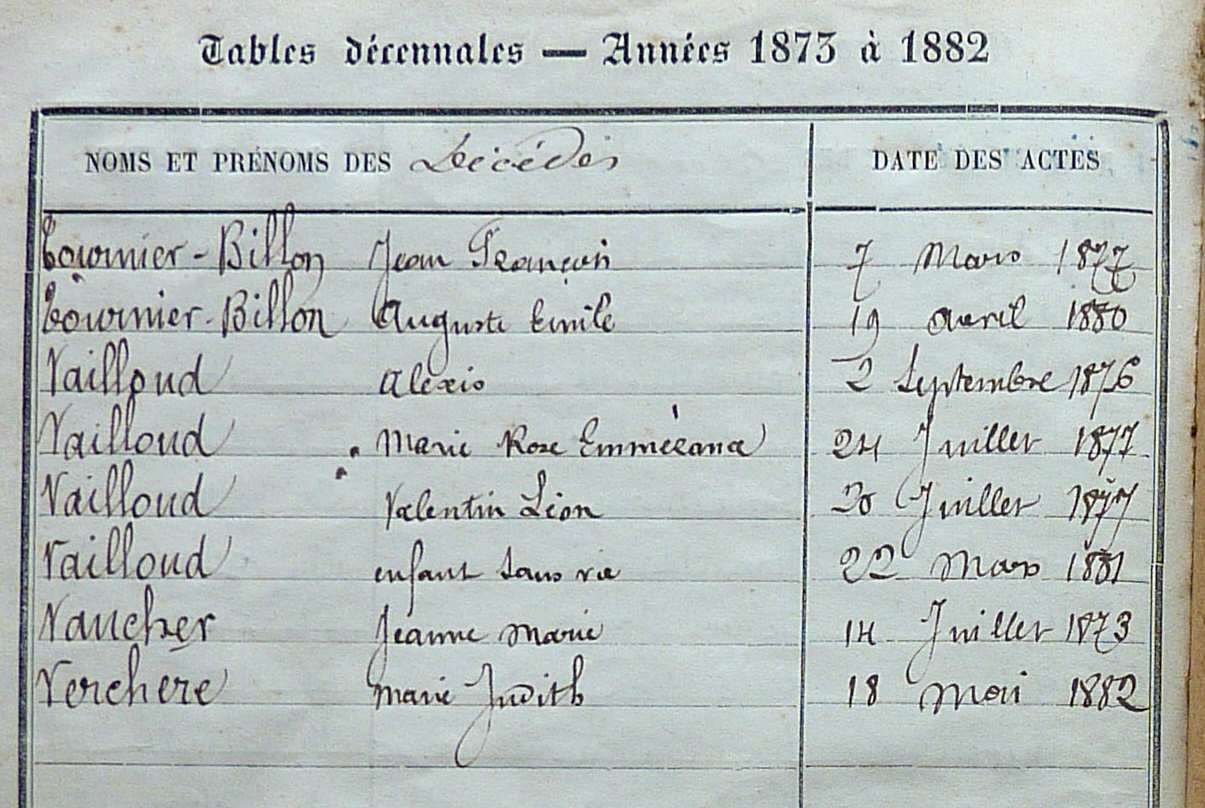 Tables décennales — Années 1873 à 1882
NOMS ET PRÉNOMS DES Décédés DATE DES ACTES
Tournier-Billon Jean François 7 Mars 1877
Tournier-Billon Auguste Emile 19 avril 1880
Vailloud Alexis 2 Septembre 1876
Vailloud Marie Rose Emmérana 24 Juillet 1877
Vailloud Valentin Léon 30 Juillet 1877
Vailloud enfant sans vie 22 Mars 1881
Vaucher Jeanne Marie 14 Juillet 1873
Verchere Marie Judith 18 Mai 1882